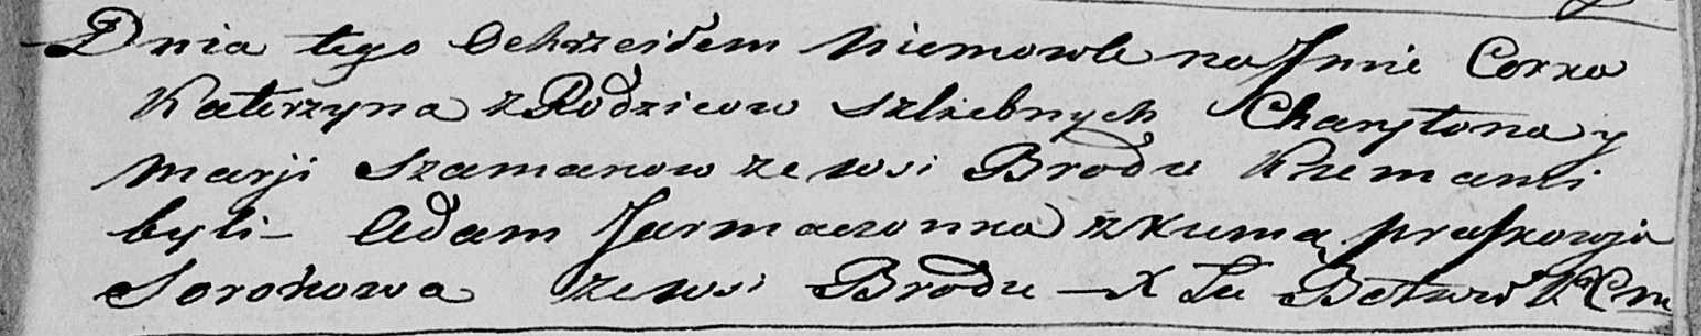 Dnia tego Ochrzciłem Niemowle na Jmie Corka
Katerzyna z Rodzicow szlżebnych Charytona y
Marji Szamanow ze wsi Brodu Kumami
byli – Adam Jarmaczonka z kumą praskowja
Sorokowa ze wsi Brodu – X